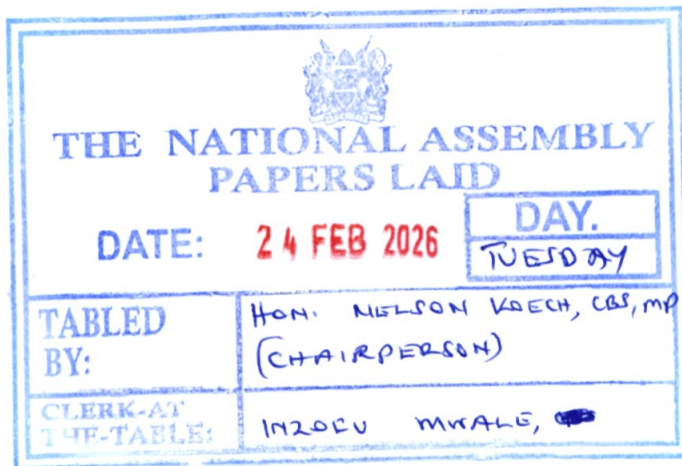 THE NATIONAL ASSEMBLY
PAPERS LAID
DATE: 24 FEB 2026
DAY.
TUESDAY
TABLED BY:
HON. NELSON KOECH, CBS, MP
(CHAIRPERSON)
CLERK-AT
THE-TABLE:
INZOFU MWALE,